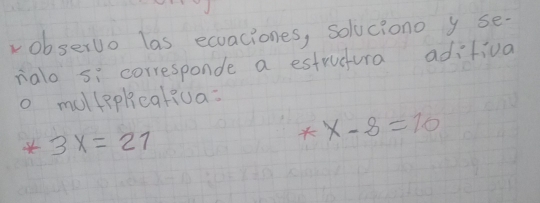 Observo las ecuaciones, soluciono y se-
ñalo si corresponde a estructura aditiva
o multiplicativa:
* 3x = 21 * x - 8 = 10